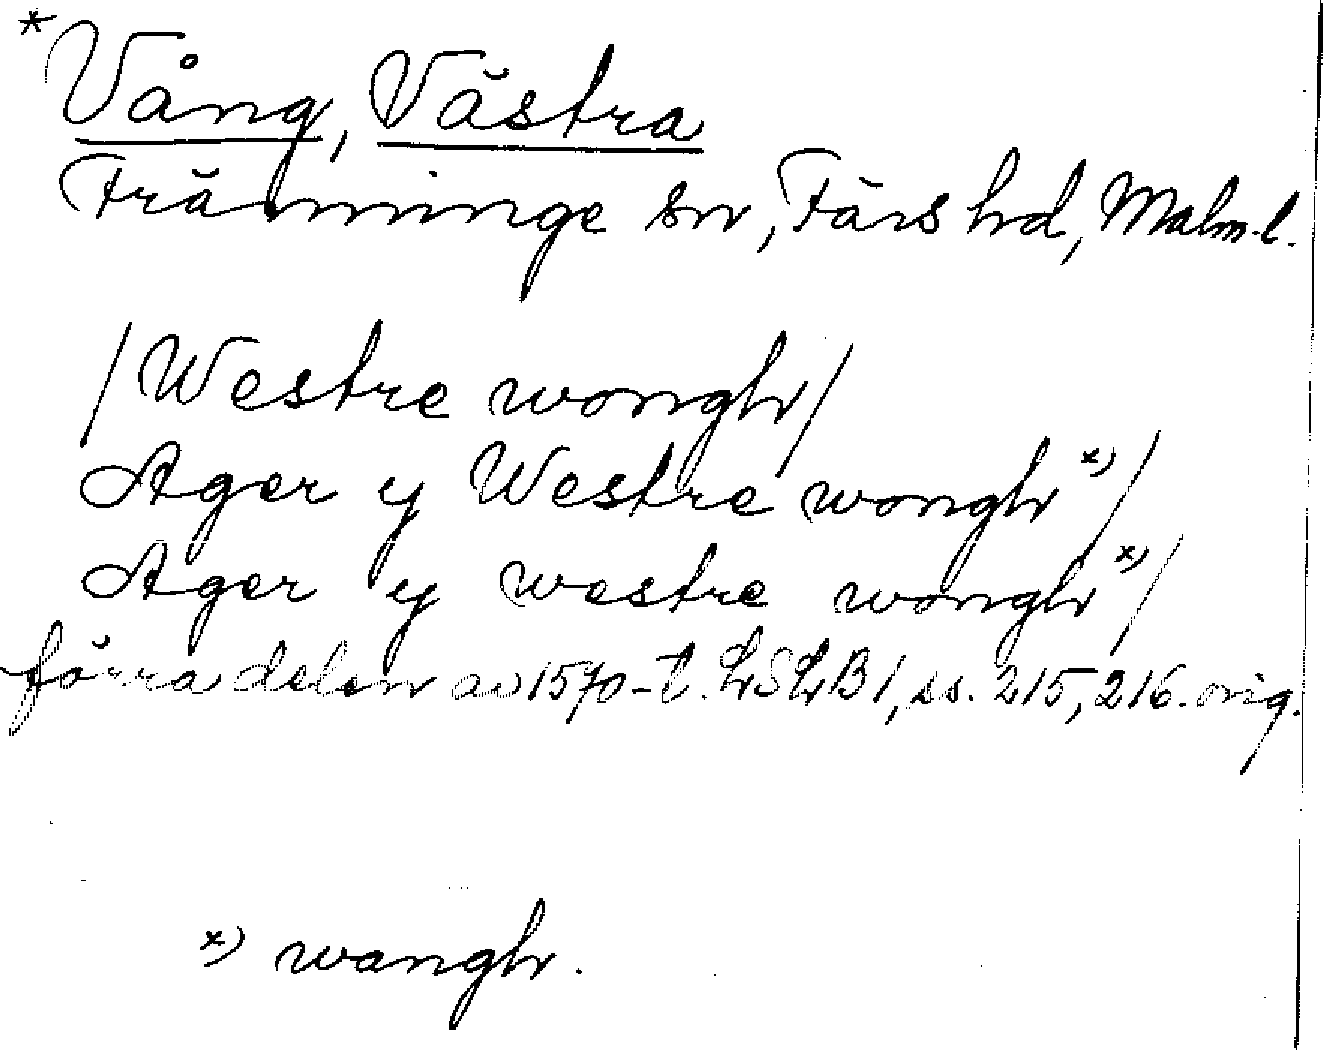 *Vång, Västra
Fränninge sn, Färs hd, Malm.l.
/Westre wongh/
Ager y Westre wongh x)/
Ager y westre wongh x)/
förra delen av 1570-t. LSLB 1, ss. 215, 216. orig.
x) wangh.